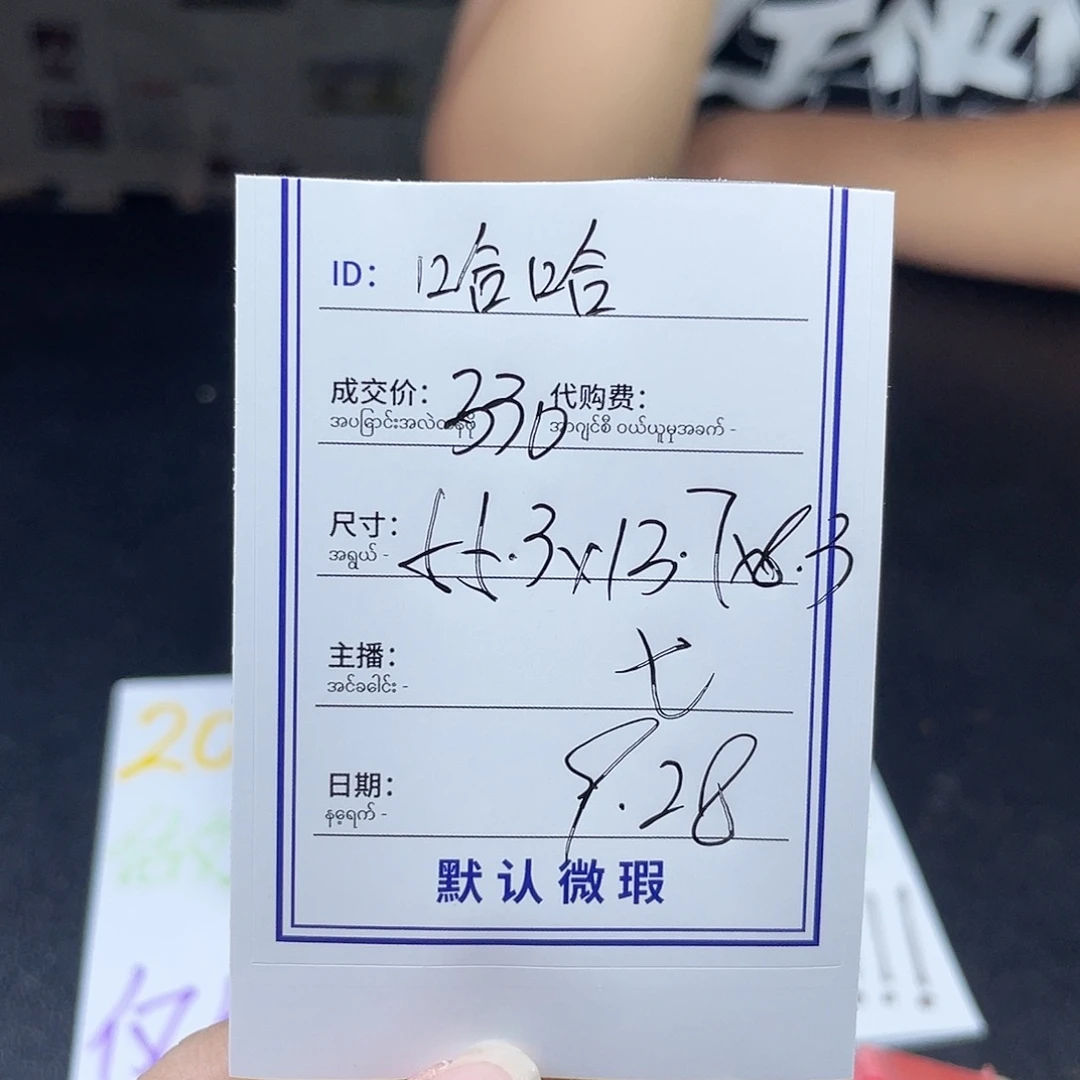 ID: 哈哈
成交价: 330 代购费:
အပြောင်းအလဲ အေဂျင်စီ ဝယ်ယူမှုအခက် -
尺寸: 44.3x13.7x8.3
အရွယ် -
主播: 七
အင်ခေါင်း -
日期: 9.28
နေ့ရက် -
默认微瑕
20
仅